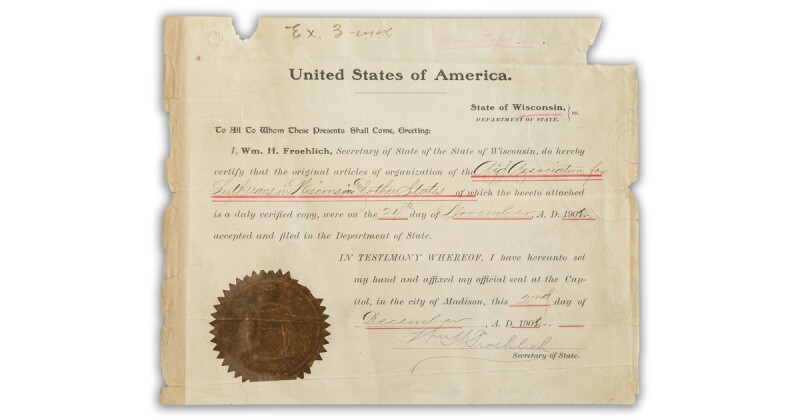 Ex. 3-
United States of America.
State of Wisconsin, } ss.
DEPARTMENT OF STATE.
To All To Whom These Presents Shall Come, Greeting:
I, Wm. H. Froehlich, Secretary of State of the State of Wisconsin, do hereby
certify that the original articles of organization of the Aid Association for
Lutherans in Wisconsin & other States of which the hereto attached
is a duly verified copy, were on the 24th day of November, A. D. 1902.
accepted and filed in the Department of State.
IN TESTIMONY WHEREOF, I have hereunto set
my hand and affixed my official seal at the Cap-
itol, in the city of Madison, this 2nd day of
December, A. D. 1902.
Wm H Froehlich
Secretary of State.